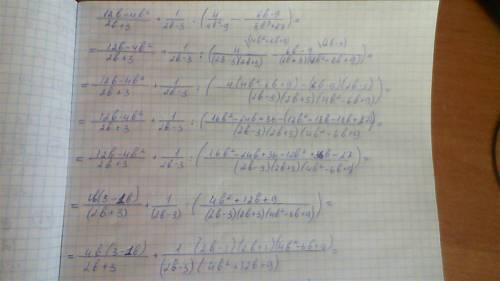 (12b-4b²)/(2b+3) + 1/(2b-3) : (4/(4b²-9) - (6b-9)/(8b³+27)) =
= (12b-4b²)/(2b+3) + 1/(2b-3) : (4/((2b-3)(2b+3)) (4b²-6b+9) - (6b-9)/((2b+3)(4b²-6b+9)) (2b-3)) =
= (12b-4b²)/(2b+3) + 1/(2b-3) : (4(4b²-6b+9) - (6b-9)(2b-3))/((2b-3)(2b+3)(4b²-6b+9)) =
= (12b-4b²)/(2b+3) + 1/(2b-3) : (16b²-24b+36-(12b²-18b-18b+27))/((2b-3)(2b+3)(4b²-6b+9) =
= (12b-4b²)/(2b+3) + 1/(2b-3) : (16b²-24b+36-12b²+36b-27)/((2b-3)(2b+3)(4b²-6b+9) =
= 4b(3-1b)/(2b+3) + 1/(2b-3) : (4b²+12b+9)/((2b-3)(2b+3)(4b²-6b+9)) =
= 4b(3-1b)/(2b+3) + 1(2b-3)(2b+3)(4b²-6b+9)/((2b-3)(4b²+12b+9)) =